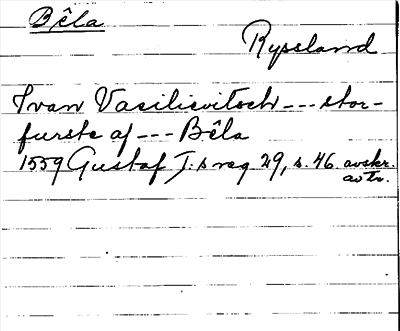 Bêla
Ryssland
Ivan Vasilievitsch --- stor-
furste af --- Bêla
1559 Gustaf I:s reg. 29, s. 46 avskr.
avtr.